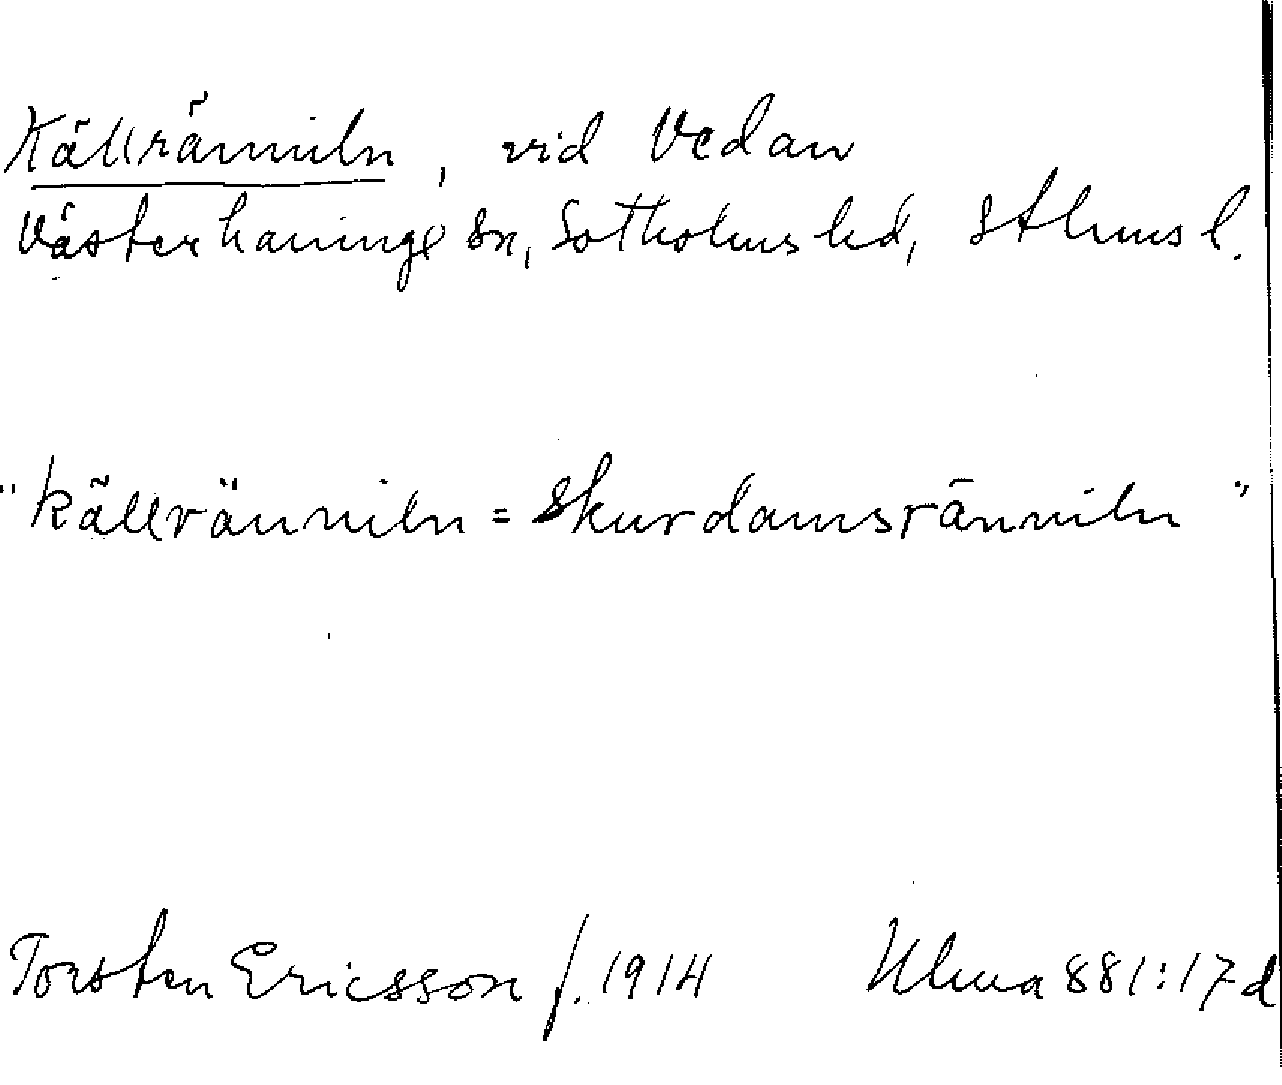 Källränniln, vid Vedan
Västerhaninge sn, Sotholms hd, Sthms l.
"Källränniln = Skurdamsränniln"
Torsten Ericsson f. 1914 Ulma 881:17d